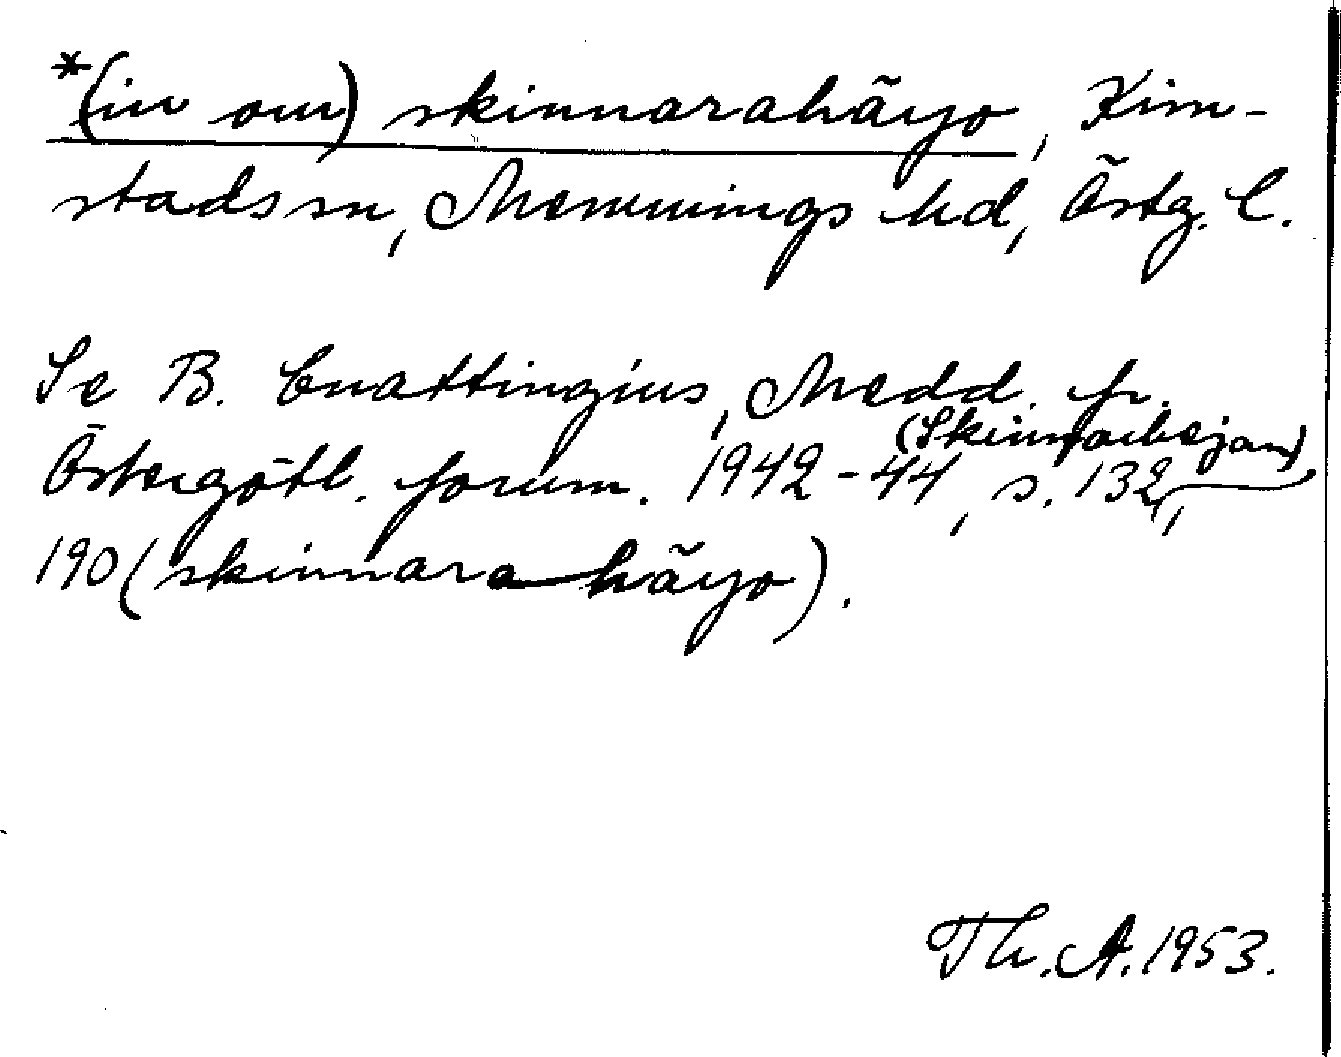 *(in om) skinnarahäyo, Kim-
stads sn, Memmings hd, Östg. l.
Se B. Cnattingius, Medd. fr.
Östergötl. fornm. 1942-44, s. 132,
190 (skinnara häyo).
Th. A. 1953.